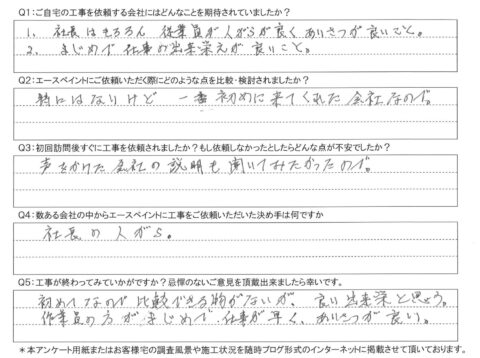 Q1：ご自宅の工事を依頼する会社にはどんなことを期待されていましたか？
1、社長はもちろん 従業員が人がらが良く あいさつが良いこと。
2、まじめで 仕事の出来栄えが 良いこと。
Q2：エースペイントにご依頼いただく際にどのような点を比較・検討されましたか？
特にはないけど 一番初めに来てくれた会社なので。
Q3：初回訪問後すぐに工事を依頼されましたか？もし依頼しなかったとしたらどんな点が不安でしたか？
声をかけた会社の説明も聞いてみたかったので。
Q4：数ある会社の中からエースペイントに工事をご依頼いただいた決め手は何ですか
社長の人がら。
Q5：工事が終わってみていかがですか？忌憚のないご意見を頂戴出来ましたら幸いです。
初めてなので比較できる物がないが、良い出来栄と思う。
作業員の方がまじめで、仕事が早く、あいさつが良い。
＊本アンケート用紙またはお客様宅の調査風景や施工状況を随時ブログ形式のインターネットに掲載させて頂いております。